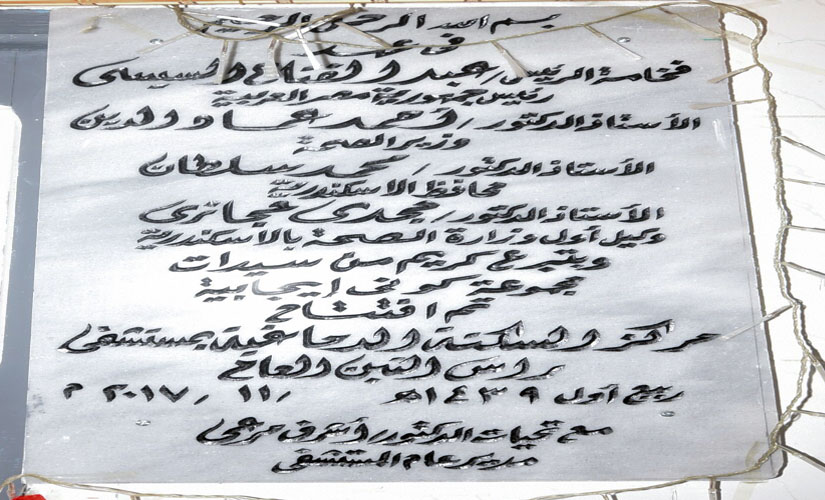 بسم الله الرحمن الرحيم
فى عهد
فخامة الرئيس / عبد الفتاح السيسى
رئيس جمهورية مصر العربية
الأستاذ الدكتور / أحمد عماد الدين
وزير الصحة
الأستاذ الدكتور / محمد سلطان
محافظ الاسكندرية
الأستاذ الدكتور / مجدى حجازى
وكيل أول وزارة الصحة بالأسكندرية
وبتبرع كريم من سيدات
مجموعة كونى إيجابية
تم افتتاح
مركز السكتة الدماغية بمستشفى
راس التين العام
ربيع أول ١٤٣٩هـ / ١١ / ٢٠١٧ م
مع تحيات الدكتور / أشرف مرعى
مدير عام المستشفى